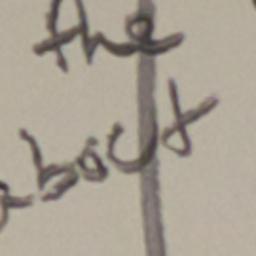 the
about